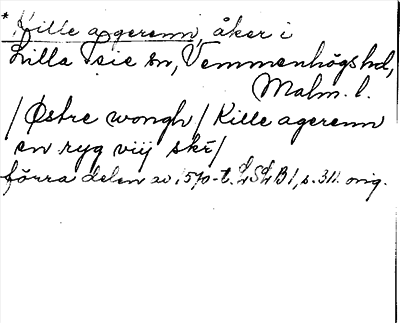 * Kille agerenn, åker i
Lilla Isie sn, Vemmenhögs hd,
Malm. l.
/Østre wongh/ Kille agerenn
en ryg viij skr/
förra delen av 1570-t. LSLB 1, s. 311. orig.